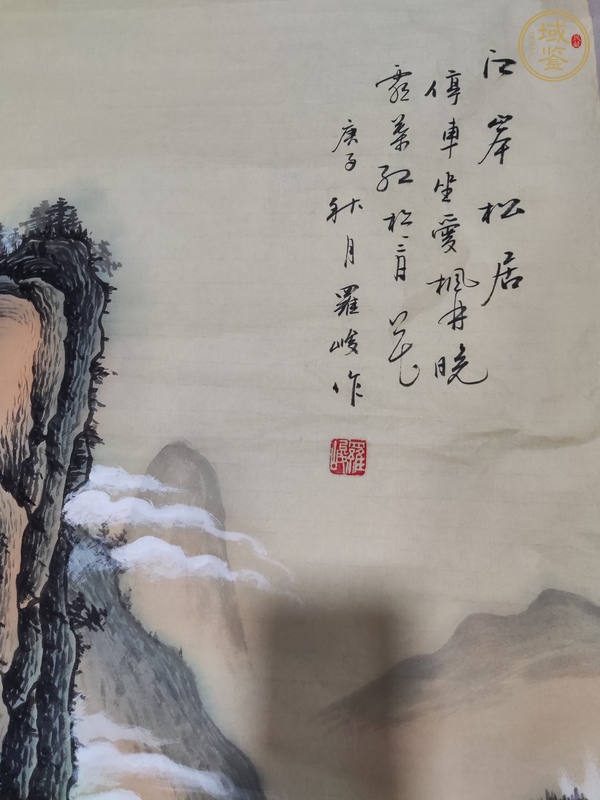 江岸松居
停車坐愛楓林晚
霜葉紅於二月花
庚子秋月羅峻作
羅峻
域鉴